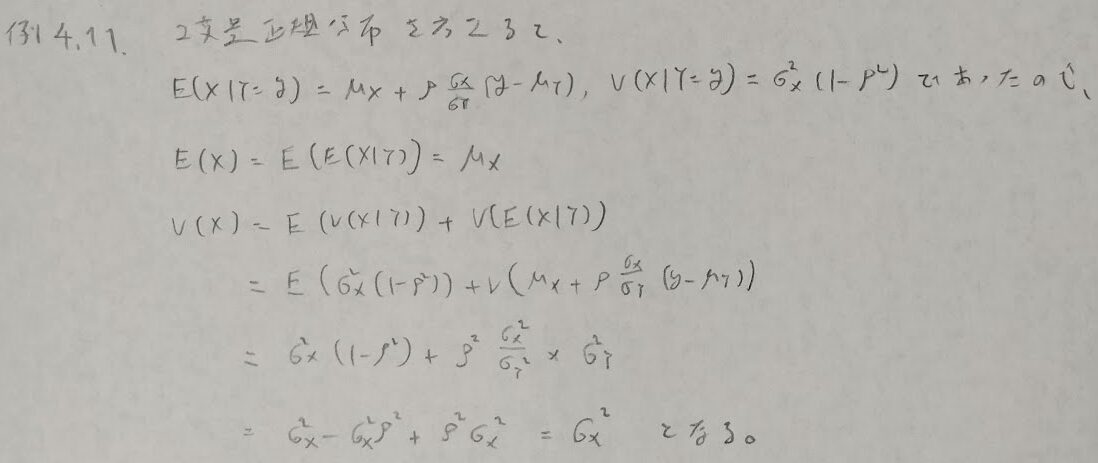 例4.11. 2変量正規分布を考えると、
E(X|Y=y) = μx + ρ σx/σY (y-μY), V(X|Y=y) = σx²(1-ρ²) であったので、
E(X) = E(E(X|Y)) = μx
V(X) = E(V(X|Y)) + V(E(X|Y))
= E(σx²(1-ρ²)) + V(μx + ρ σx/σY (y-μY))
= σx²(1-ρ²) + ρ² σx²/σY² × σY²
= σx² - σx²ρ² + ρ²σx² = σx² となる。